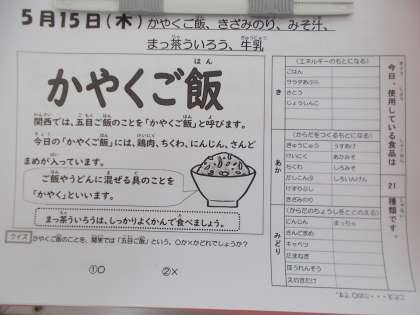 5月15日(木) かやくご飯、きざみのり、みそ汁、
まっ茶ういろう、牛乳
かやくご飯
関西では、五目ご飯のことを「かやくご飯」と呼びます。
今日の「かやくご飯」には、鶏肉、ちくわ、にんじん、さんど
まめが入っています。
ご飯やうどんに混ぜる具のことを
「かやく」といいます。
まっ茶ういろうは、しっかりよくかんで食べましょう。
クイズ かやくご飯のことを、関東では「五目ご飯」という。○か×かどれでしょうか?
①○ ②×
今日、使用している食品は 21 種類です。
き
(エネルギーのもとになる)
ごはん
サラダあぶら
さとう
じょうしんこ
あか
(からだをつくるもとになる)
ぎゅうにゅう うすあげ
けいにく あかみそ
ちくわ しろみそ
だしこんぶ しろいんげん
けずりぶし
きざみのり
みどり
(からだのちょうしをととのえる)
にんじん まっちゃ
さんどまめ
キャベツ
たまねぎ
ほうれんそう
えのきだけ